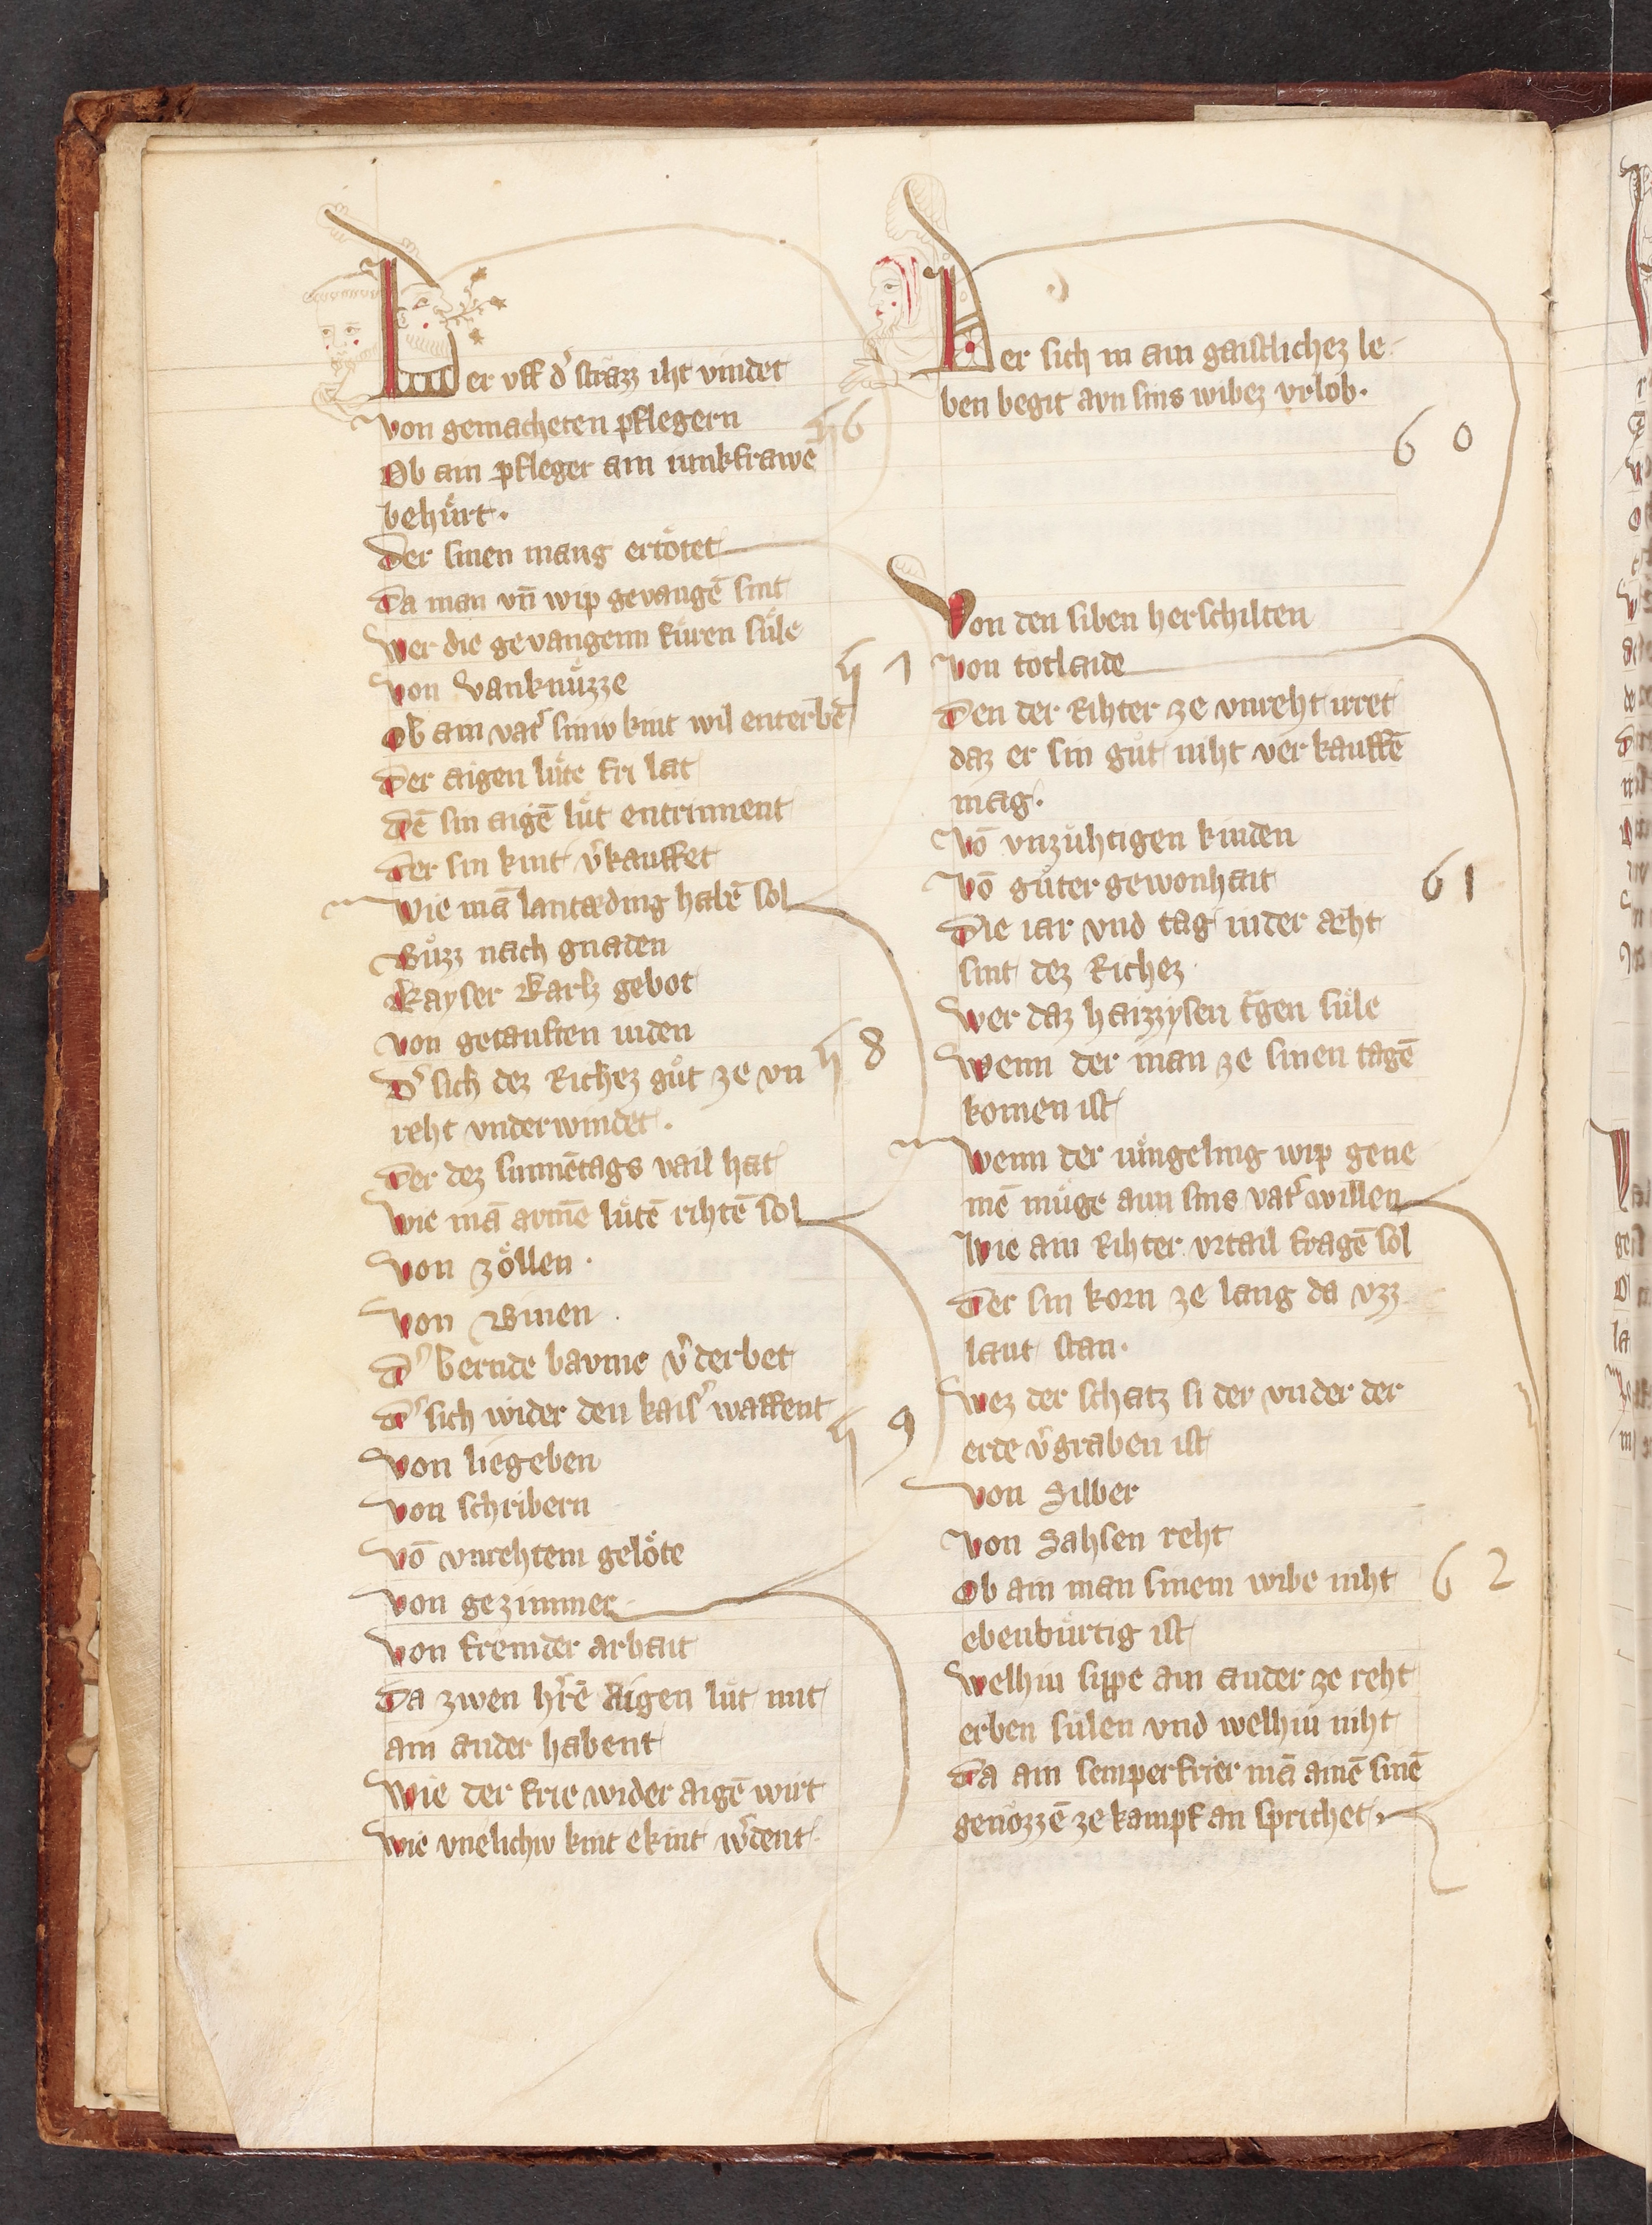 Der vff d' strazz iht vindet
Von gemacheten pflegern
56
Ob ain pfleger ain iunkfrawe
behuͤrt.
Der sinen mang ertoͤtet
Da man vn̄ wip gevangē sint
Wer die gevangenn fuͤren suͤle
Von Vanknuͤzze
Ob ain vat' siniv kint wil enterbē
Der aigen luͤte fri lat
Dē sin aigē luͤt entrinnent
Der sin kint v'kauffet
Wie mā lantæding habē sol
Buͤzz nach gnaden
Kayser Karls gebot
Von getauften iuden
D' sich dez Richez guͦt ze vn
58
reht vnderwindet.
Der dez sunnētags vail hat
Wie mā armē luͤtē rihtē sol
Von zoͤllen.
Von Binen.
D' bernde bavme v'derbet
D' sich wider den kais' waffent
59
Von liegeben
Von schribern
Vō vnrehtem geloͤte
Von gezimmer
Von fremder arbait
Da zwen h'rē aigen luͤt mit
ain ander habent
Wie der frie wider aigē wirt
Wie vnelichiv kint ekint w'dent
Der sich in ain gaistlichez le
ben begit avn sins wibez vrlob.
60
Von den siben herschilten
Von totlaide
Den der Rihter ze vnreht irret
daz er sin guͦt niht verkauffē
mag.
Vō vnzuͤhtigen kinden
Vō guͦter gewonhait
61
Die iar vnd tag in der aͤht
sint dez Richez
Wer daz haizzysen t̄gen suͤle
Wenn der man ze sinen tagē
komen ist
Wenn der iuͤngeling wip gene
mē muͤge aun sins vat' willen
Wie ain Rihter vrtail fragē sol
Der sin korn ze lang da vzz
laut stan.
Wez der schatz si der vnder der
erde v'graben ist
Von Silber
Von Sahsen reht
Ob ain man sinem wibe niht
62
ebenbuͤrtig ist
Welhiu sippe ain ander ze reht
erben suͤlen vnd welhiu niht
Da ain semperfrier mā ainē sinē
genozzē ze kampf an sprichet.